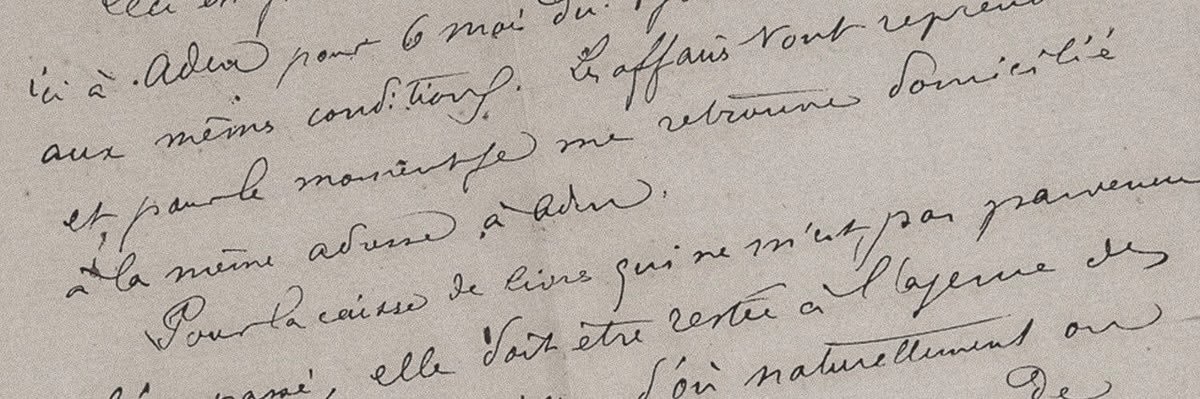 ici à Aden pour 6 mois du
aux mêmes conditions. Les affaires vont reprend
et pour le moment je me retrouve domicilié
à la même adresse, à Aden.
Pour la caisse de livres qui ne m'est pas parvenue
passé, elle doit être restée à l'agence des
d'où naturellement on
de